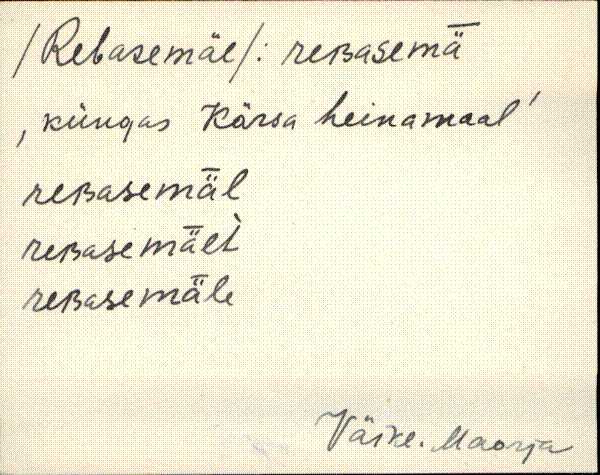 /Rebasemäe/: reʙasemǟ
‚küngas Kärsa heinamaal'
reʙasemǟl
reʙasemǟlt̀
reʙasemǟle
Väike-Maarja